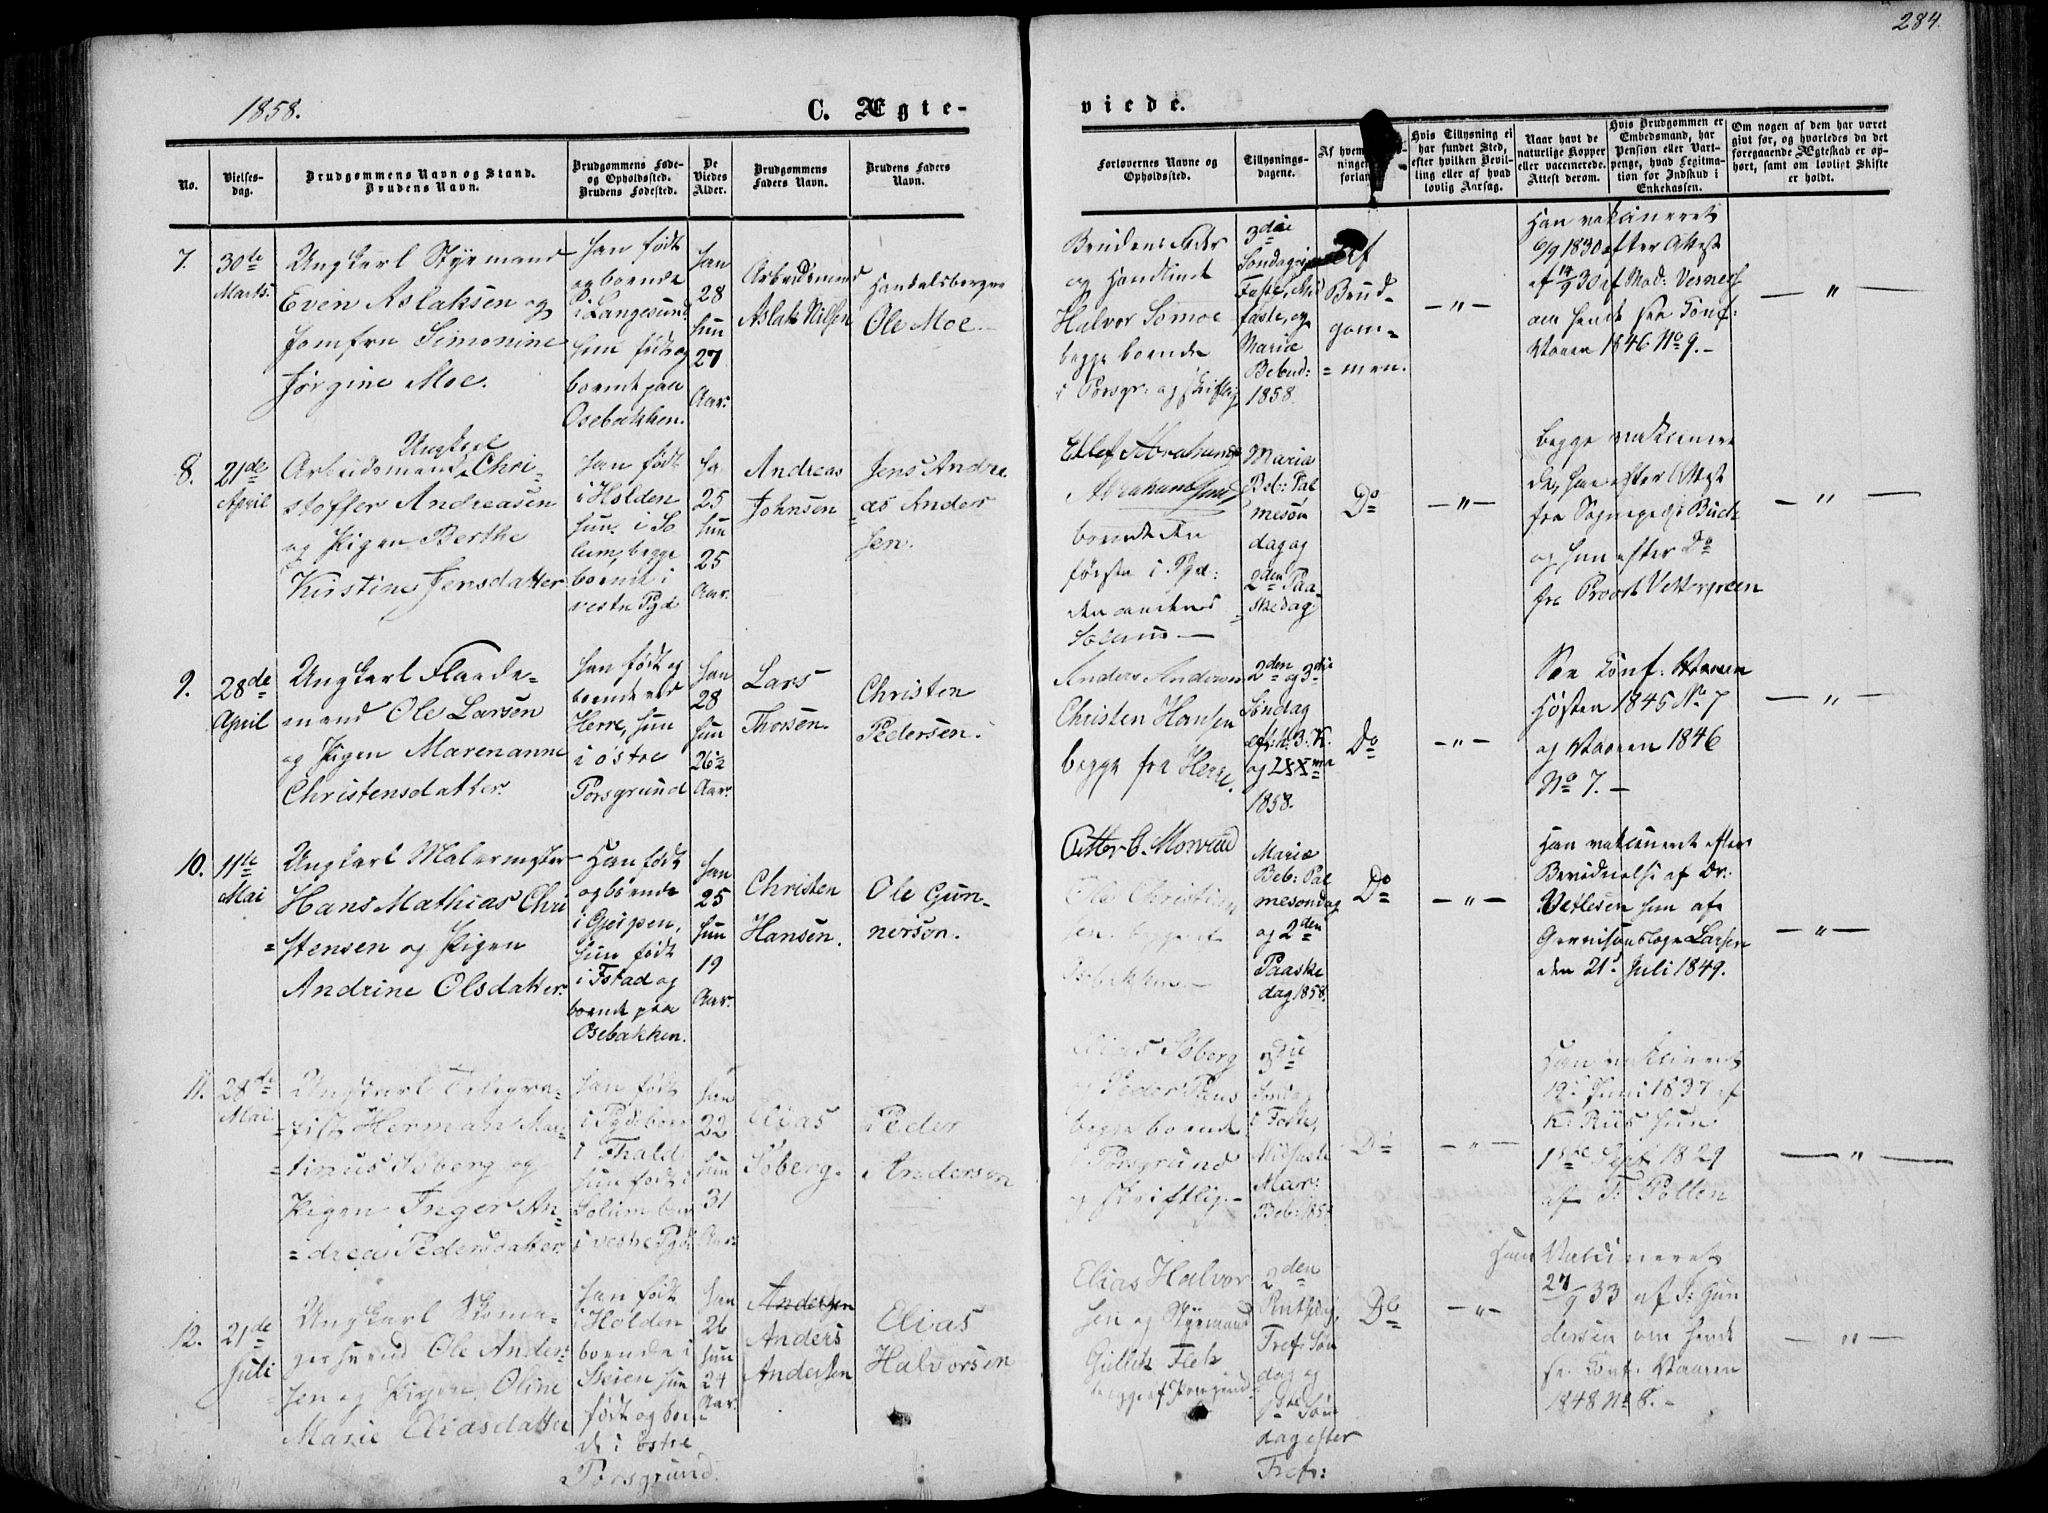 284.
1858.
C. Ægte-
viede.
No.
Vielses-
dag.
Brudgommens Navn og Stand.
Brudens Navn.
Brudgommens Føde-
og Opholdssted.
Brudens Fødested.
De
Viedes
Alder.
Brudgommens
Faders Navn.
Brudens Faders
Navn.
Forlovernes Navne og
Opholdssted.
Tillysnings-
dagene.
Af hvem
ningen
forlan
Hvis Tillysning ei
har fundet Sted,
efter hvilken Bevil-
ling eller af hvad
lovlig Aarsag.
Naar havt de
naturlige Kopper
eller vaccinerede.
Attest derom.
Hvis Brudgommen er
Embedsmand, har
Pension eller Vart-
penge, hvad Legitima-
tion for Indskud i
Enkekassen.
Om nogen af dem har været
givt før, og hvorledes da det
foregaaende Ægteskab er op-
hørt, samt om lovligt Skifte
er holdt.
7.
30te
Marts.
Ungkarl Styrmand
Even Aslaksen og
Jomfru Simonine
Jørgine Moe.
Han født
og boende
i Langesund
hun født og
boende paa
Osebakken.
Han
28
hun
27
Aar.
Arbeidsmand
Aslak Nilsen
Handelsborger
Ole Moe.
Brudens Fader
og Handlende
Halvor
begge boende
i Porsgr: og skriftlig
3die
Søndag i
Faste, Mid
faste, og
Mariæ
Bebud:
1858.
Af
Brud-
gom-
= men.
— " —
Han vakcineret
6/9 1830 efter Attest
af 14/9 30 af Mad:
om hende see Conf:
Vaaren 1846 No 9. —
— " —
8.
21de
April
Ungkarl
Arbeidsmand Chri-
stoffer Andreasen
og Pigen Berthe
Kirstine Jensdatter
Han født
i Holden
hun i So
lum, begge
boende i
vestre Pgd
Ha
25
hun
25
Aar.
Andreas
Johnsen
Jens Andre
as Ander
sen.
Ellef Abrahams
Abrahamsen
boende den
første i Pgr:
den anden
Solum —
Maria
Beb: Pal
mesøn
dag og
2den Paa
skedag
Do
— " —
begge vakcinere
de, han efter Attest
fra Sognepr:
og hun efter Do
fra Provst
— " —
9.
28de
April
Ungkarl Flaade-
mand Ole Larsen
og Pigen Marenanne
Christensdatter.
Han født og
boende ved
Herre, hun
i østre
Porsgrund
Han
28
hun
26½
Aar.
Lars
Thorsen.
Christen
Pedersen.
Anders Andersen
Christen Hansen
begge fra Herre.
2den og 3die
Søndag
eft: H. 3. K.
og
1858.
Do
— " —
See Conf: Vaaren
Høsten 1845 No 7
og Vaaren 1846
No 7. —
— " —
10.
11te
Mai
Ungkarl Malermester
Hans Mathias Chri
= stensen og Pigen
Andrine Olsdatter.
Han født
og boende
i Gjerpen,
hun født
i Fstad og
boende paa
Osebakken.
Han
25
hun
19
Aar.
Christen
Hansen.
Ole Gun-
nersen.
Petter C.
Ole Christian
sen begge af
Osebakken. —
Mariæ
Beb: Pal
mesøndag
og 2den
Paaske
dag 1858.
Do
— " —
Han vakcineret efter
Bevidnelse af Dr:
Vetlesen hun af
Larsen
den 21. Juli 1849.
— " —
11.
28de
Mai
Ungkarl Telegra-
fist Herman Mar-
= tinus Søberg og
Pigen Inger An
= drea Pedersdatter
Han født
i Pgd boen
i Fhald
hun født i
Solum boen
i vestre Pgd
Han
22
hun
31
Aar.
Elias
Søberg.
Peder
Andersen
Elias Søberg
Peder
begge boende
i Porsgrund
og skriftlig. —
3die
Søndag
i Faste,
Midfaste
Mar:
Beb: 1858
Do
— " —
Han vakcineret
12. Juni 1837 af
K. Riis hun
1ste Sept 1829
af T. Polten
— " —
12.
21de
Juli
Ungkarl Skoma-
gersvend Ole Ander-
sen og Pigen Oline
Marie Eliasdatter
Han født
i Holden
boende i
Skien hun
født og boen
de i østre
Porsgrund.
Han
26
hun
24
Aar.
Andersen
Anders
Andersen
Elias
Halvorsen
Elias Halvor
sen og Styrmand
Gullik
begge af Porsgrund.
2den
Pintsedag,
Tref: Søn
dag og
1ste Søn
dag efter
Tref:
Do
— " —
Han Vakcineret
27/9 33 af T: Gun
dersen om hende
se Conf: Vaaren
1848 No 8. —
— " —